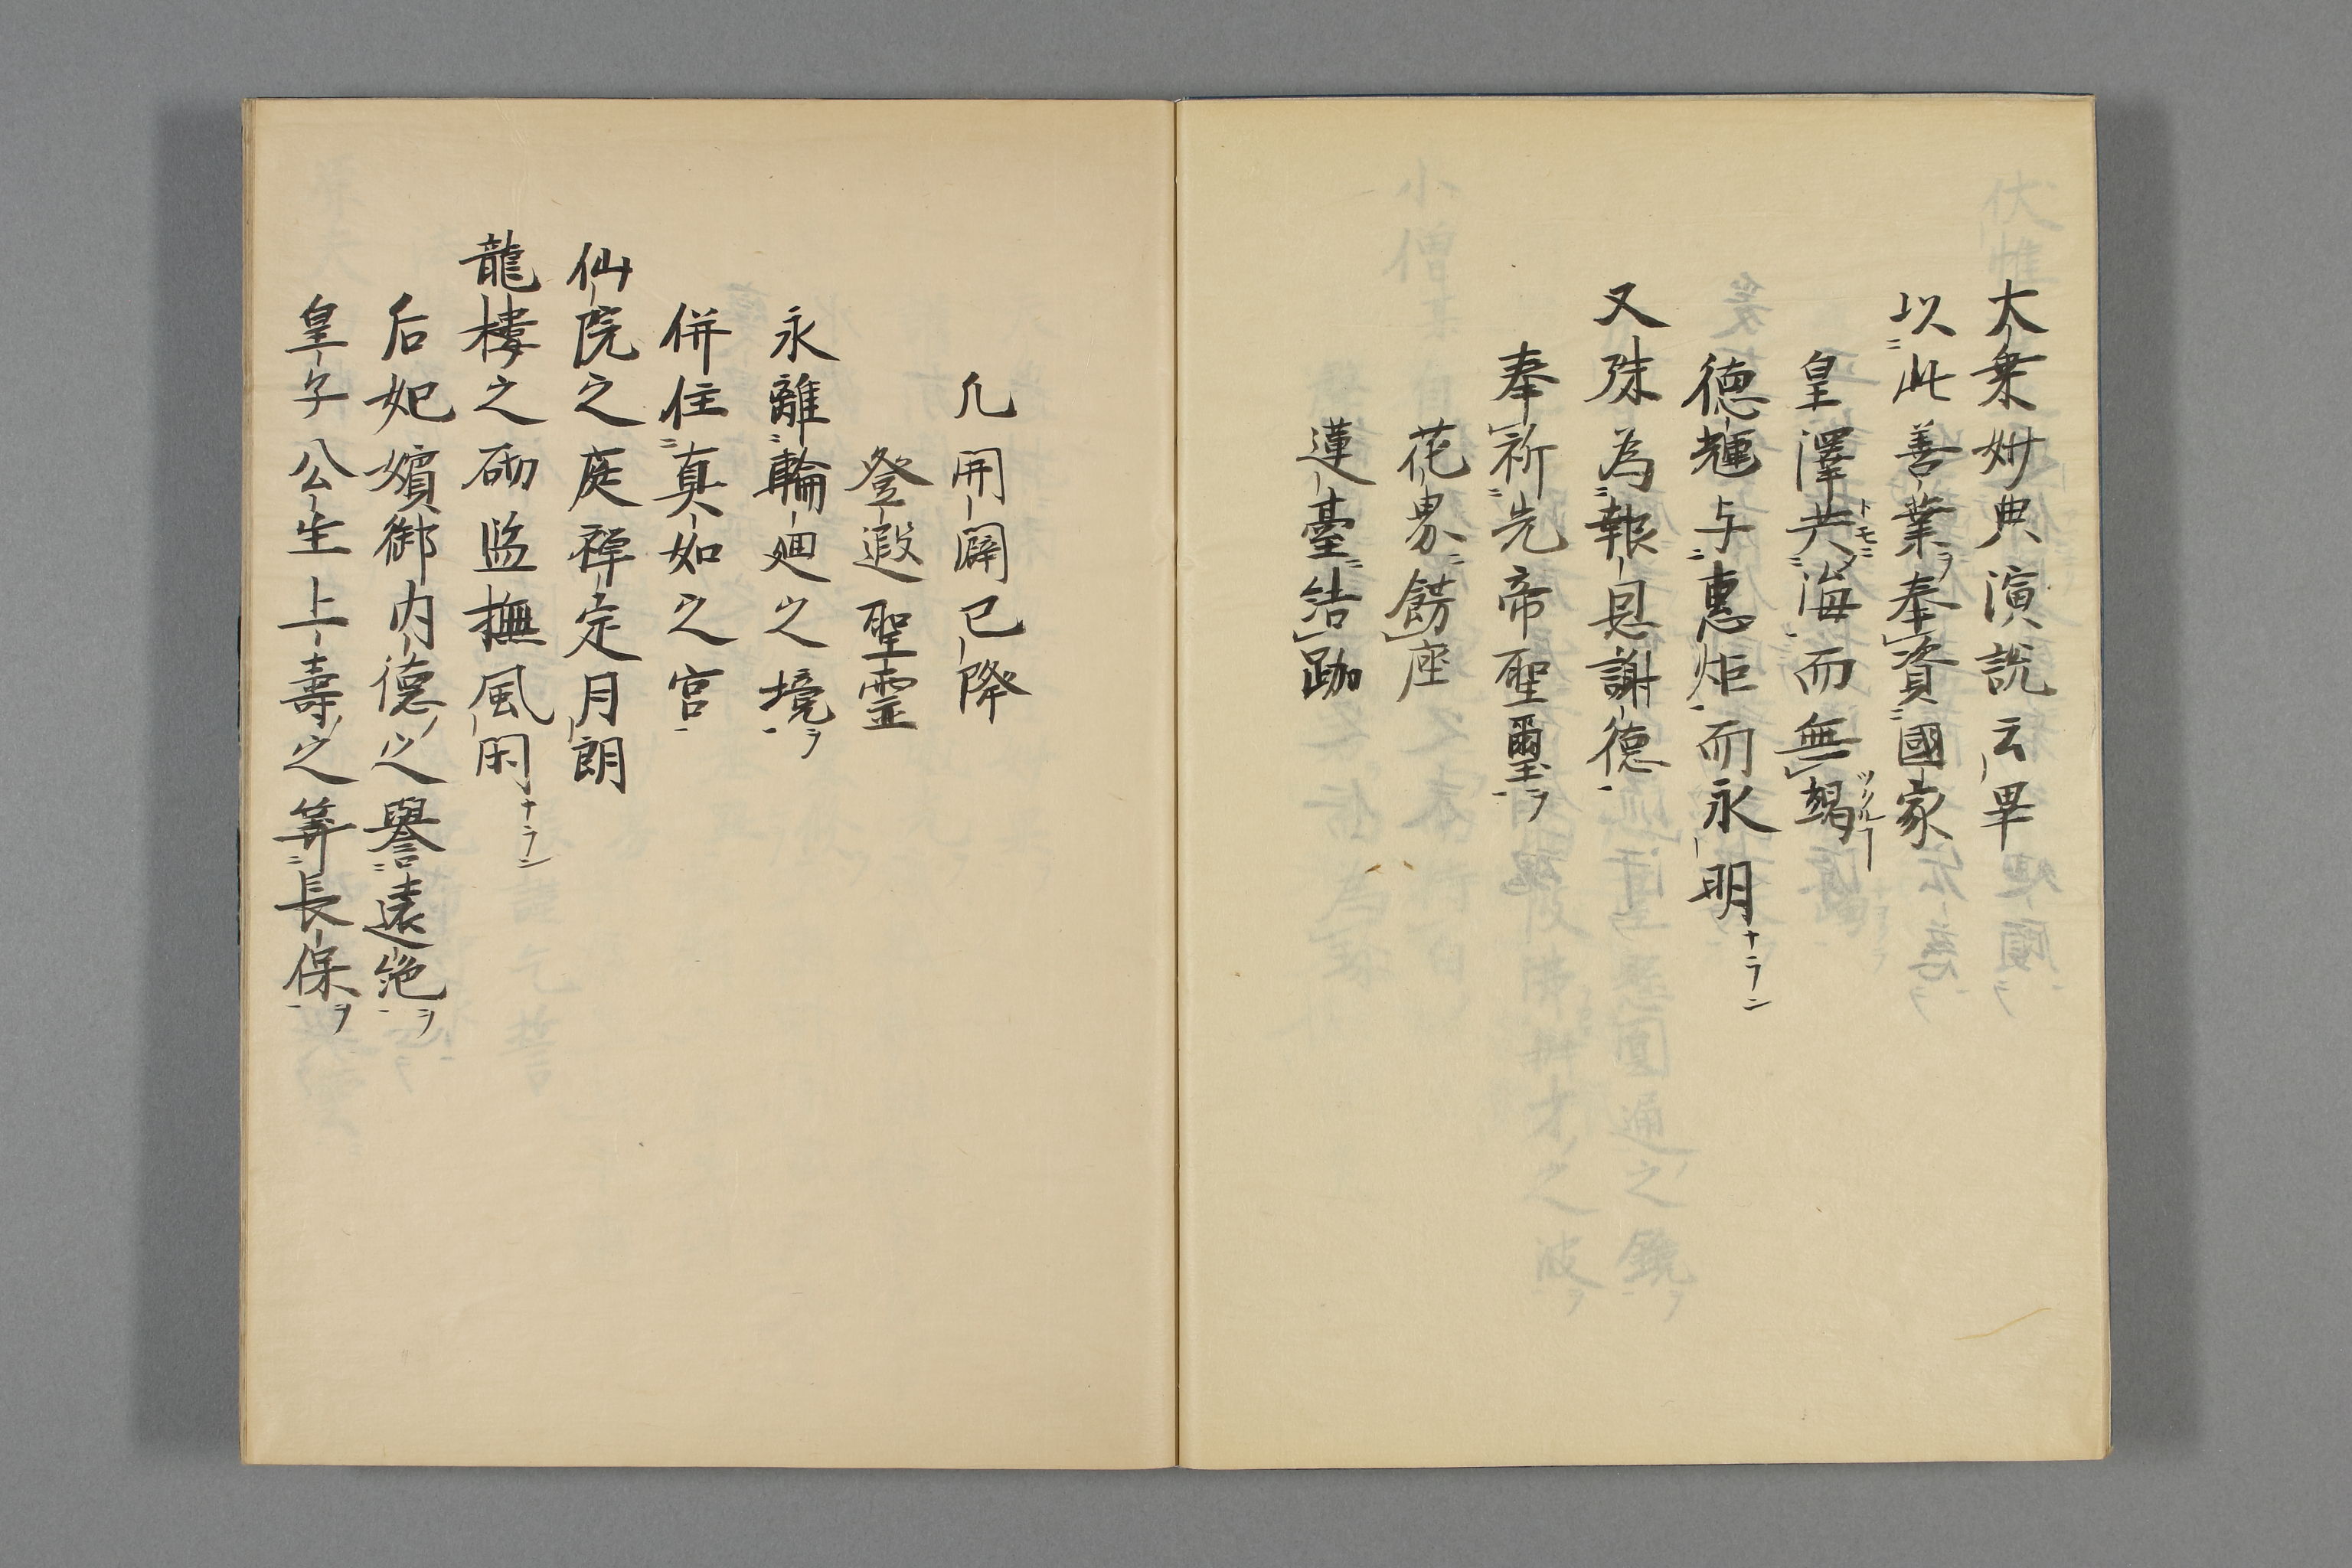 大乗妙典演説云畢
以此善業ヲ奉資國家
皇澤共トモニ海而無竭ツクルー
徳輝与惠炬而永明ナラン
又殊為報恩謝徳
奉祈先帝聖霊ヲ
花界餝座
蓮臺結跏
凢開闢已降
登遐聖霊
永離輪廻之境ヲ
併住真如之宮
仙院之庭禅定月朗
龍樓之砌監撫風閑ナラン
后妃嬪御内徳之譽遠絶ヲ
皇子公主上壽之筭長保ヲ